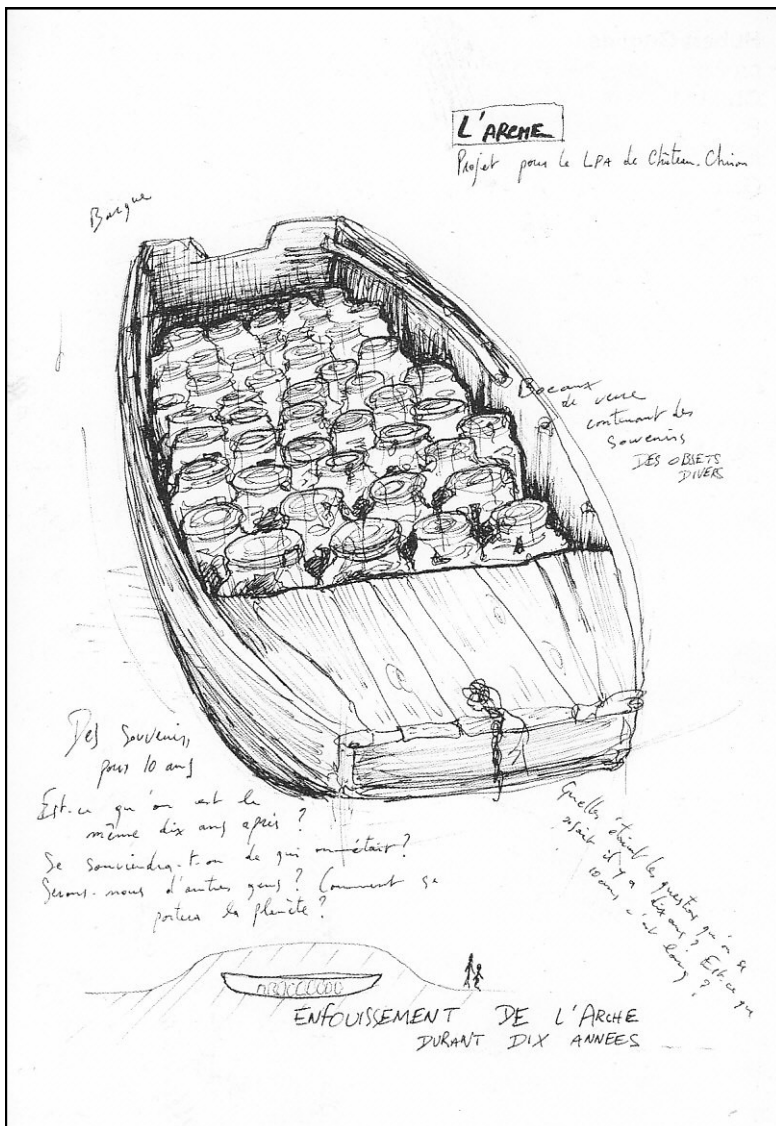 L'ARCHE
Projet pour le LPA de Château-Chinon
Barque
Bocaux
de verre
contenant des
souvenirs
DES OBJETS
DIVERS
Des souvenirs,
pour 10 ans
Est-ce qu'on est le
même dix ans après ?
Se souviendra-t-on de qui on était ?
Serons-nous d'autres gens ? Comment se
portera la planète ?
Quelles étaient les questions qu'on se
posait il y a dix ans ? Est-ce que
10 ans c'est long ?
ENFOUISSEMENT DE L'ARCHE
DURANT DIX ANNEES